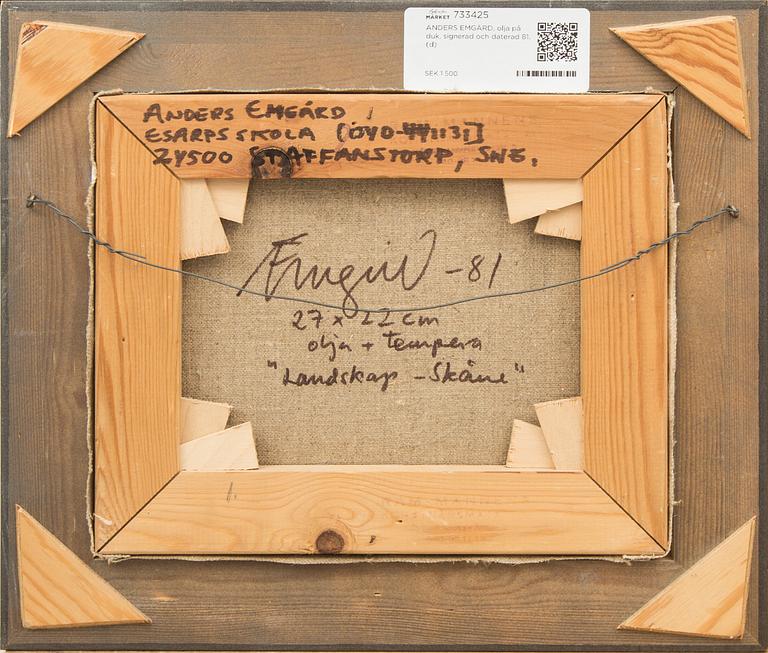 MARKET 733425
ANDERS EMGÅRD, olja på
duk, signerad och daterad 81.
(d)
SEK 1 500
ANDERS EMGÅRD
ESARPS SKOLA
24500 STAFFANSTORP, SWE.
Emgård -81
27 x 22 cm
olja + tempera
"Landskap - Skåne"